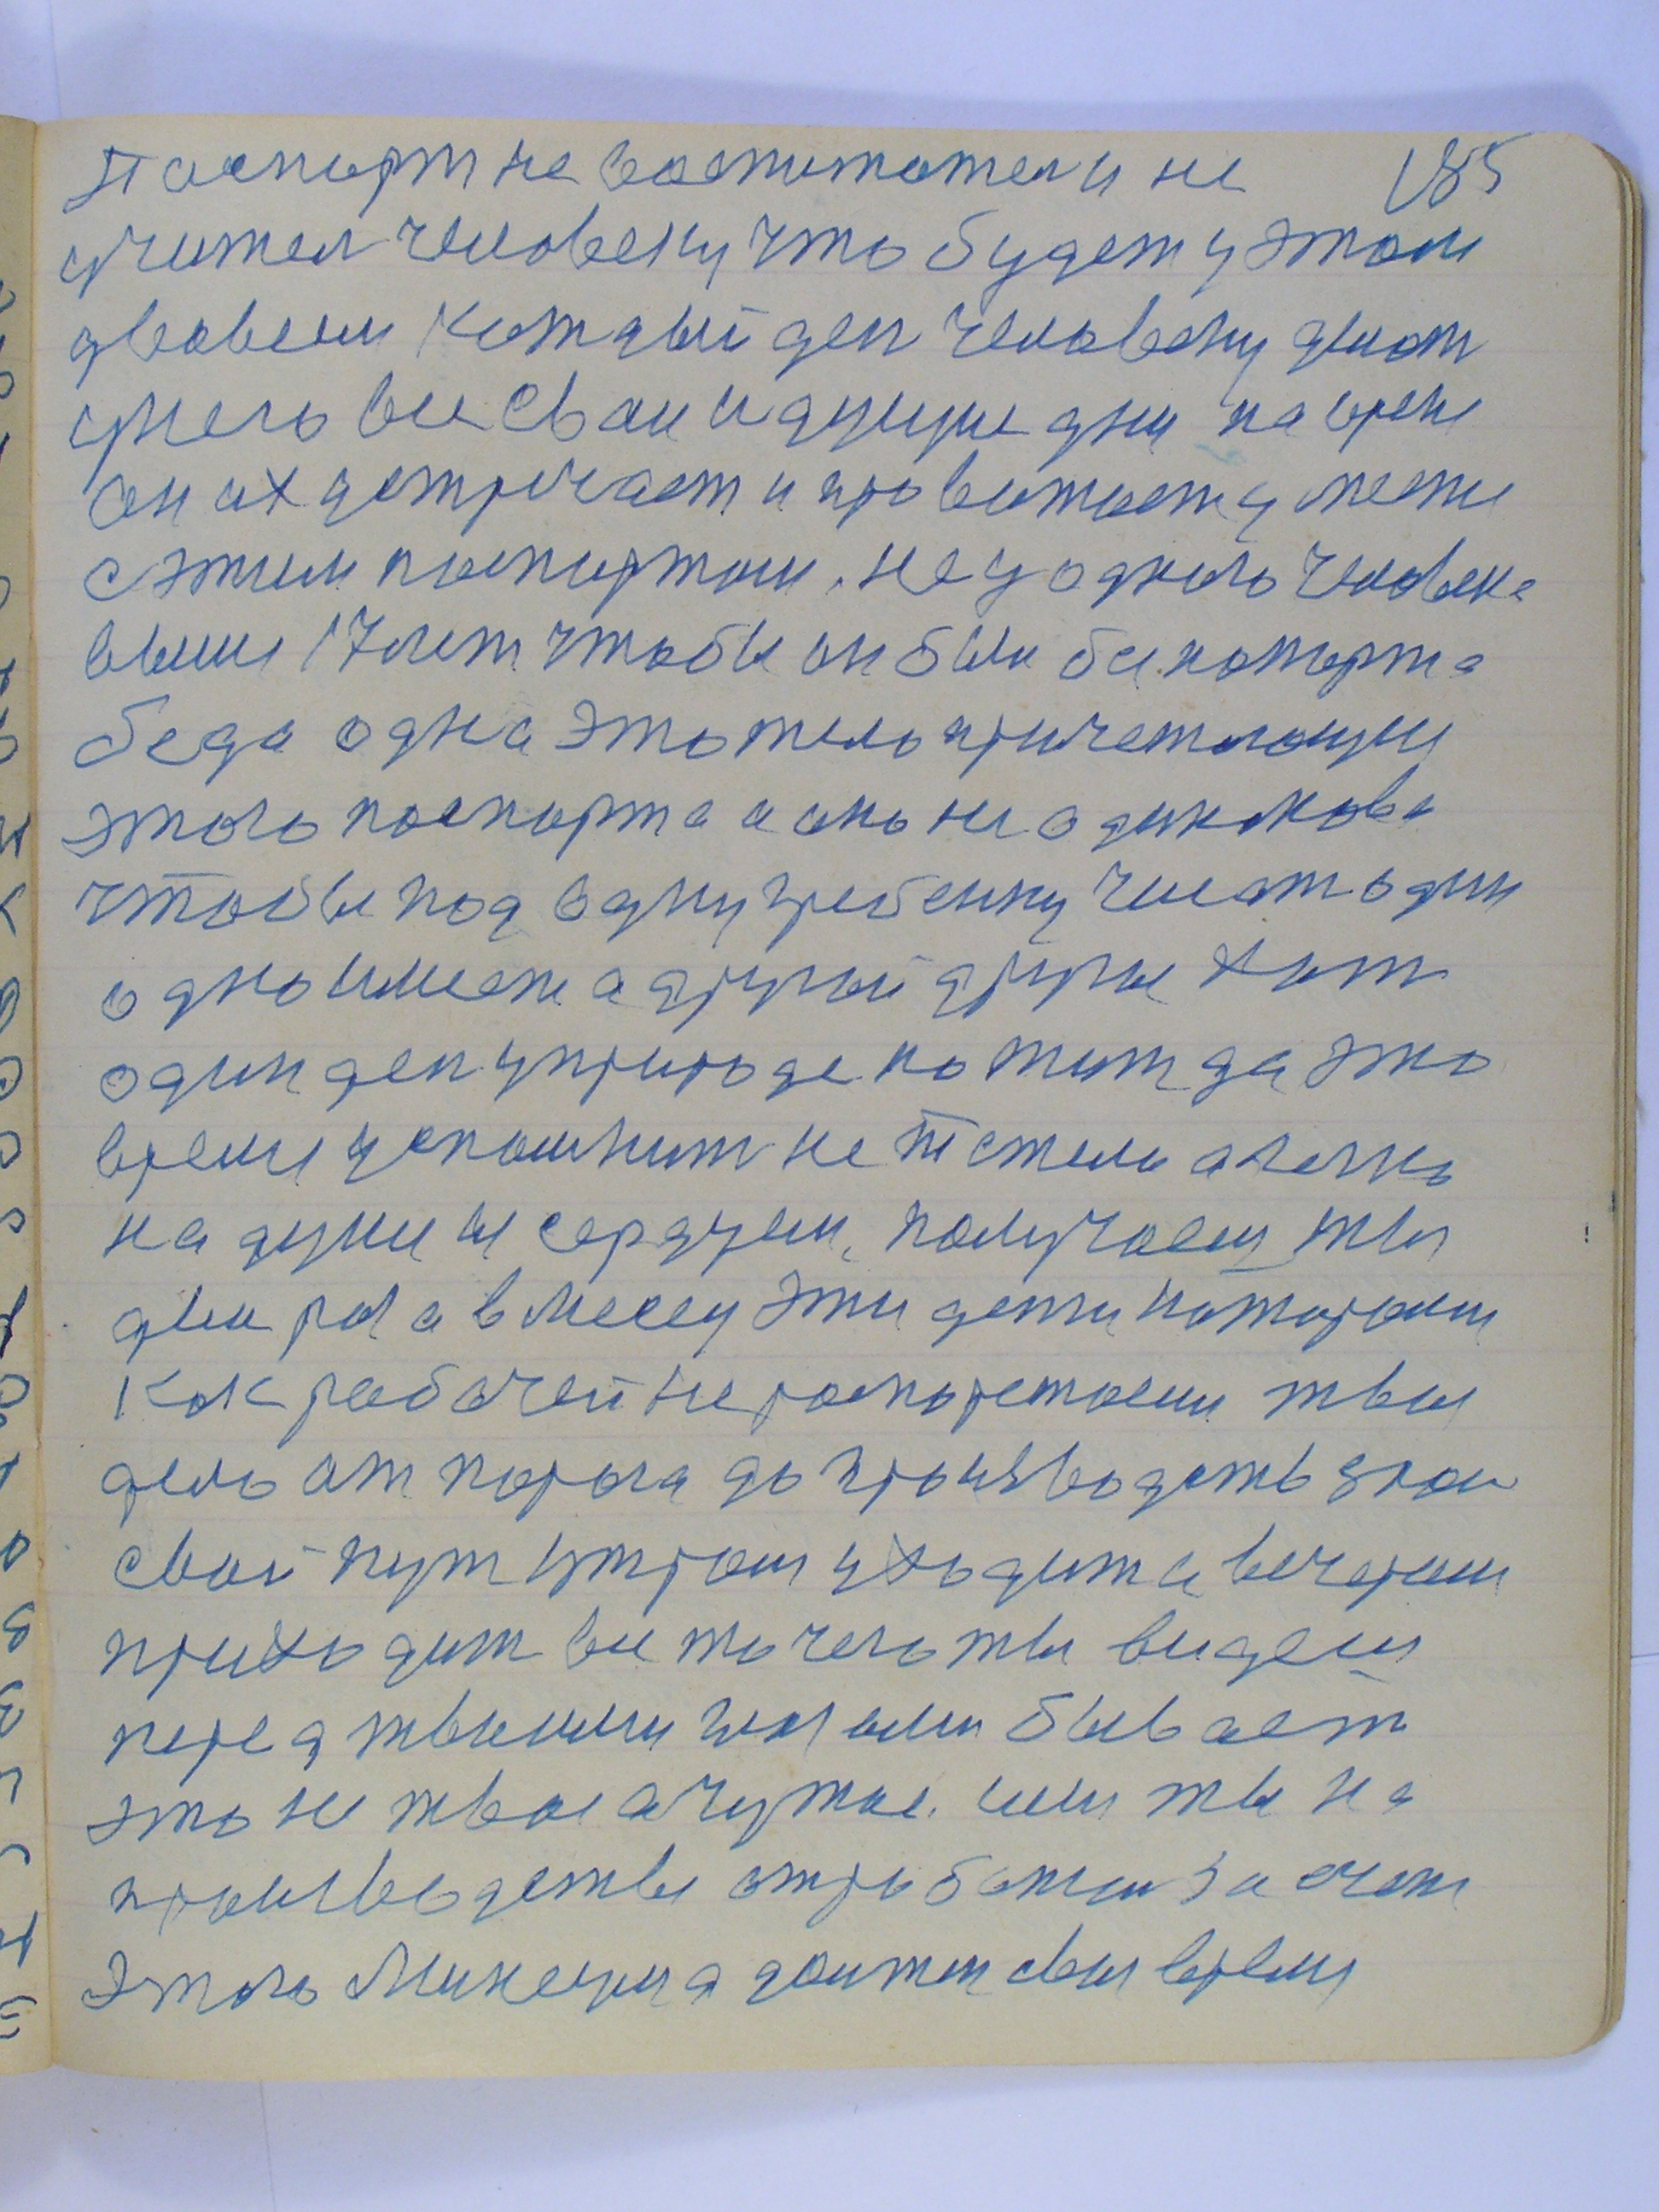 Паспорт не воспитател и не 185
учител человеку что будет у этом
двовем каждый ден человеку дают
унего все сваи идущие дни на врем
он их устричает и провитает уместе
с этим паспортом. не у одного человека
выше 17 лет чтобы он был без паспорта
беда одна это тело причетающия
этого паспорта а оно не одинокова
чтобы под одну гребенку чесат один
одно имеет а другой другие хат
один ден уприроде по жит да это
время успомнит не тестели а легко
на души и сердцем, получает ты
два раз а в месец эти денги каторыми
как рабочей не распоретаеш твое
дело от порога до производство знаи
свой пут утром уходит а вечером
приходит все то чего ты видеш
перед твоими глазами бывает
это не твое а чужое. или ты на
производстве отработал за счет
этого свои время